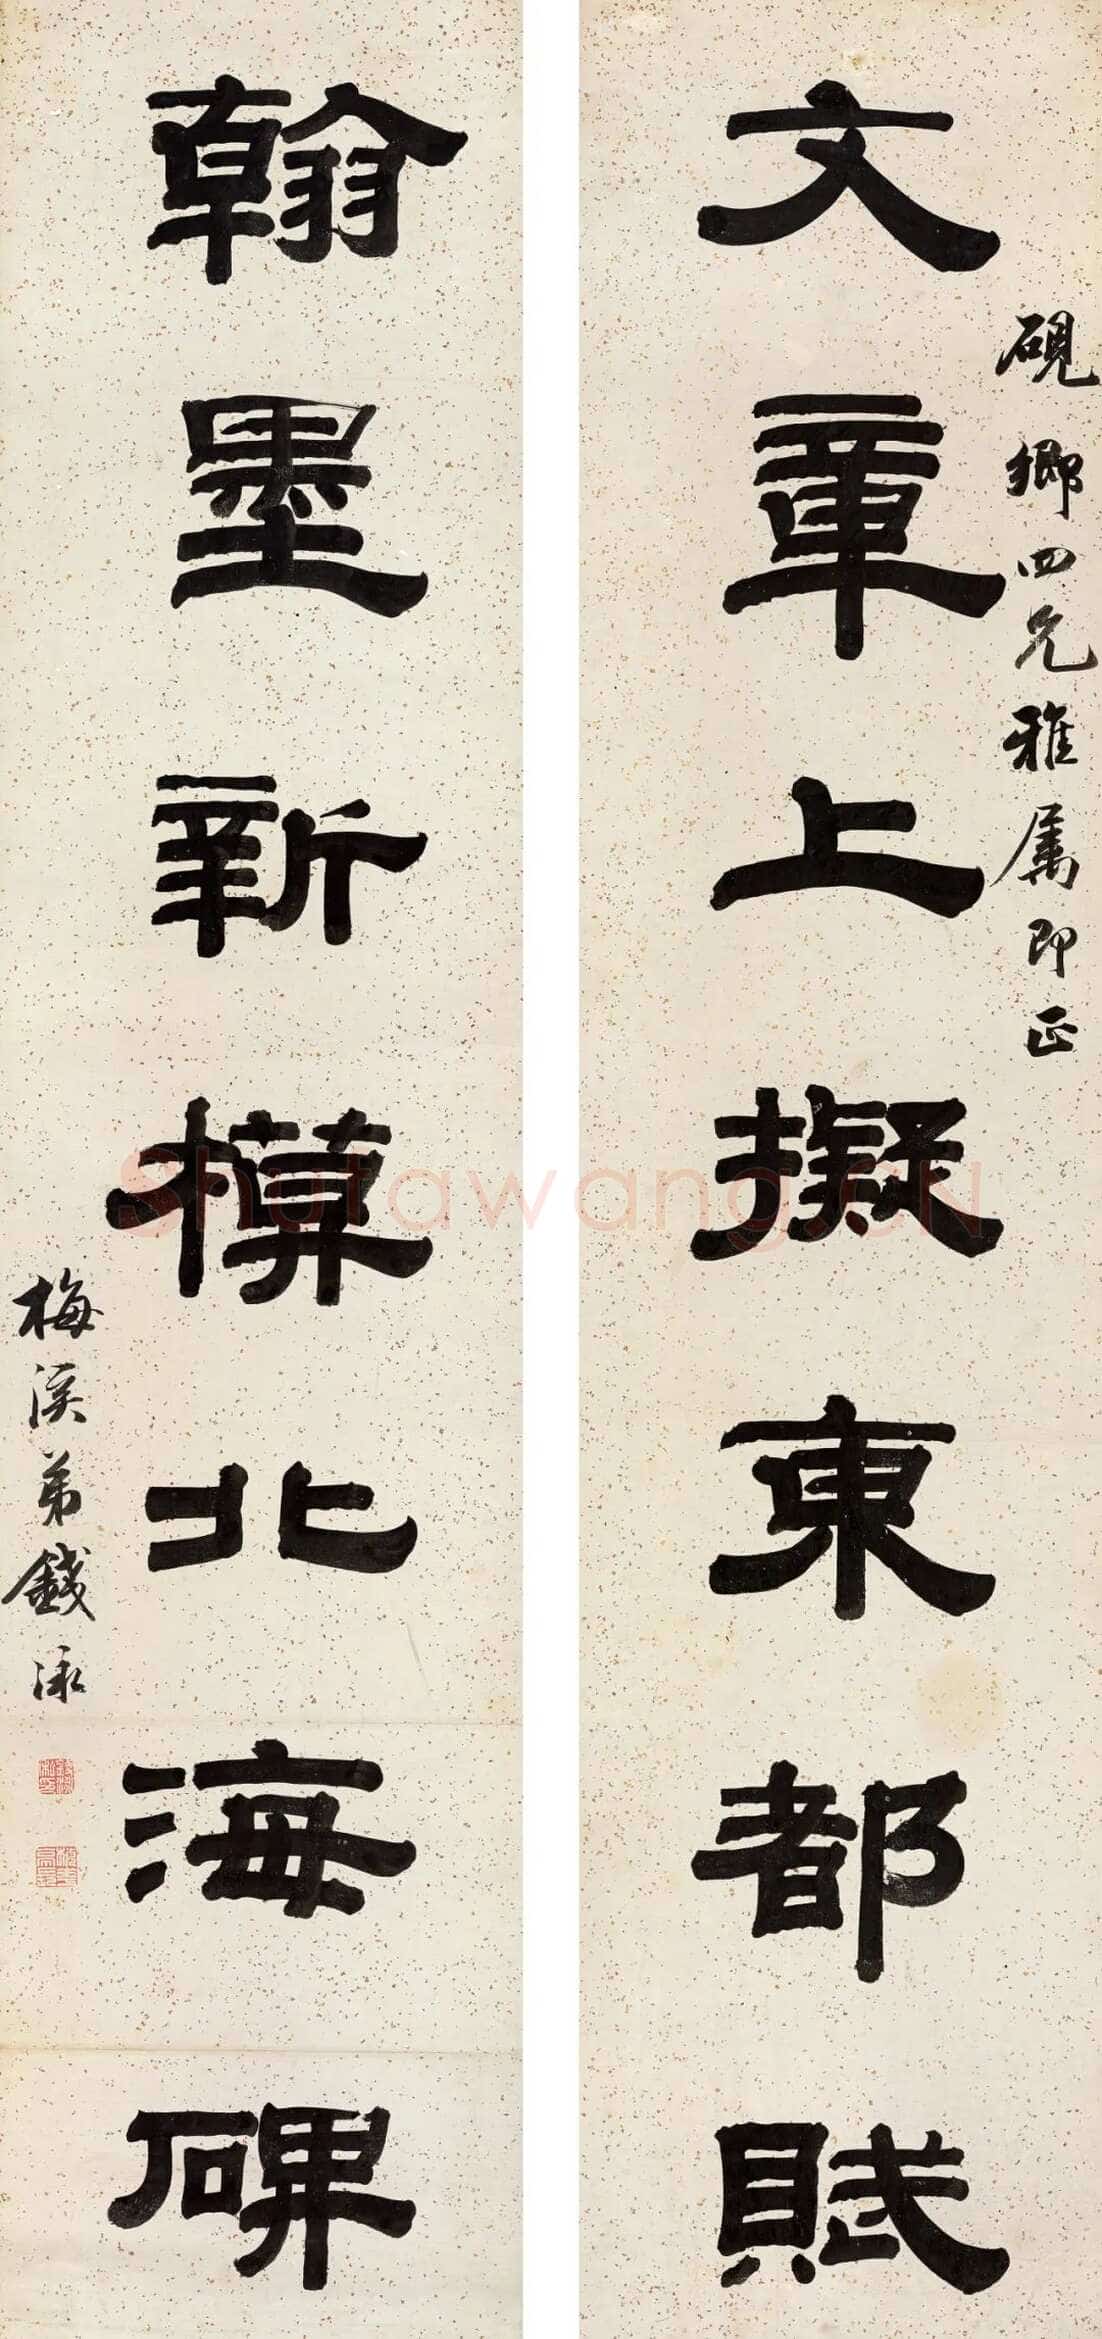 硯鄉四兄雅屬即正
文章上擬東都賦
翰墨新橅北海碑
梅溪弟錢泳
Shufawang.CN